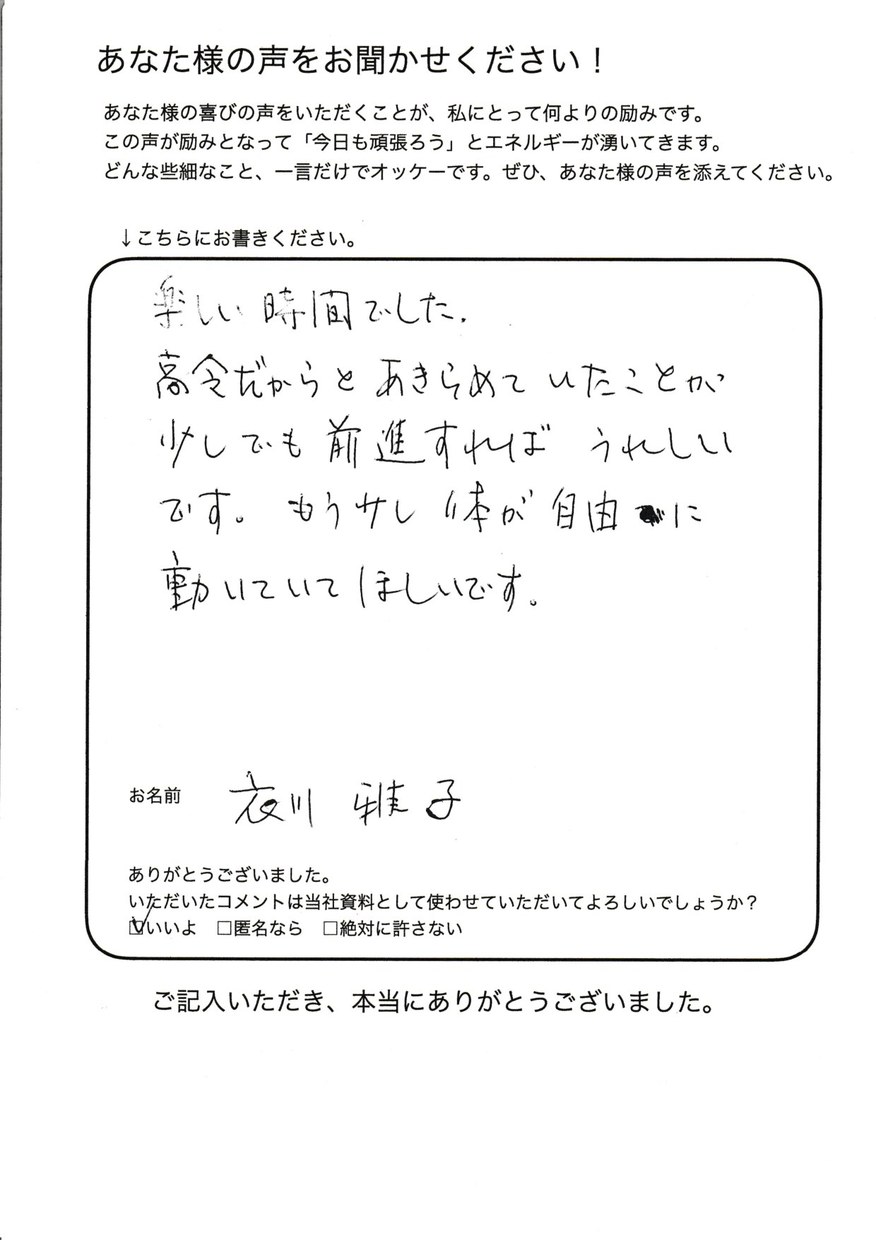 あなた様の声をお聞かせください！
あなた様の喜びの声をいただくことが、私にとって何よりの励みです。
この声が励みとなって「今日も頑張ろう」とエネルギーが湧いてきます。
どんな些細なこと、一言だけでオッケーです。ぜひ、あなた様の声を添えてください。
↓こちらにお書きください。
楽しい時間でした.
高令だからと あきらめて いたことが
少しでも 前進すれば うれしい
です。もう少し 体が 自由に
動いていて ほしいです。
お名前 衣川 雅子
ありがとうございました。
いただいたコメントは当社資料として使わせていただいてよろしいでしょうか？
☑いいよ □匿名なら □絶対に許さない
ご記入いただき、本当にありがとうございました。